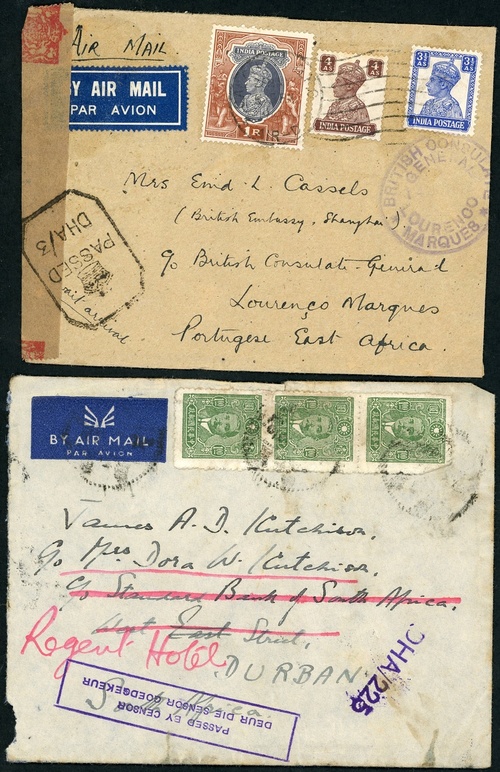 Air Mail
BY AIR MAIL
PAR AVION
INDIA POSTAGE
1 R
4 AS 4 AS
INDIA POSTAGE
3½ AS 3½ AS
INDIA POSTAGE
BRITISH CONSULATE
GENERAL
LOURENCO
MARQUES
PASSED
DHA/3
Mrs Enid L. Cassels
(British Embassy, Shanghai)
c/o British Consulate-General
Lourenço Marques
Portugese East Africa.
BY AIR MAIL
PAR AVION
James A. D. Hutchison,
c/o Mrs Dora W. Hutchison,
c/o Standard Bank of South Africa.
West East Street,
Regent Hotel
DURBAN
South Africa.
PASSED BY CENSOR
DEUR DIE SENSOR GOEDGEKEUR
DHA/225